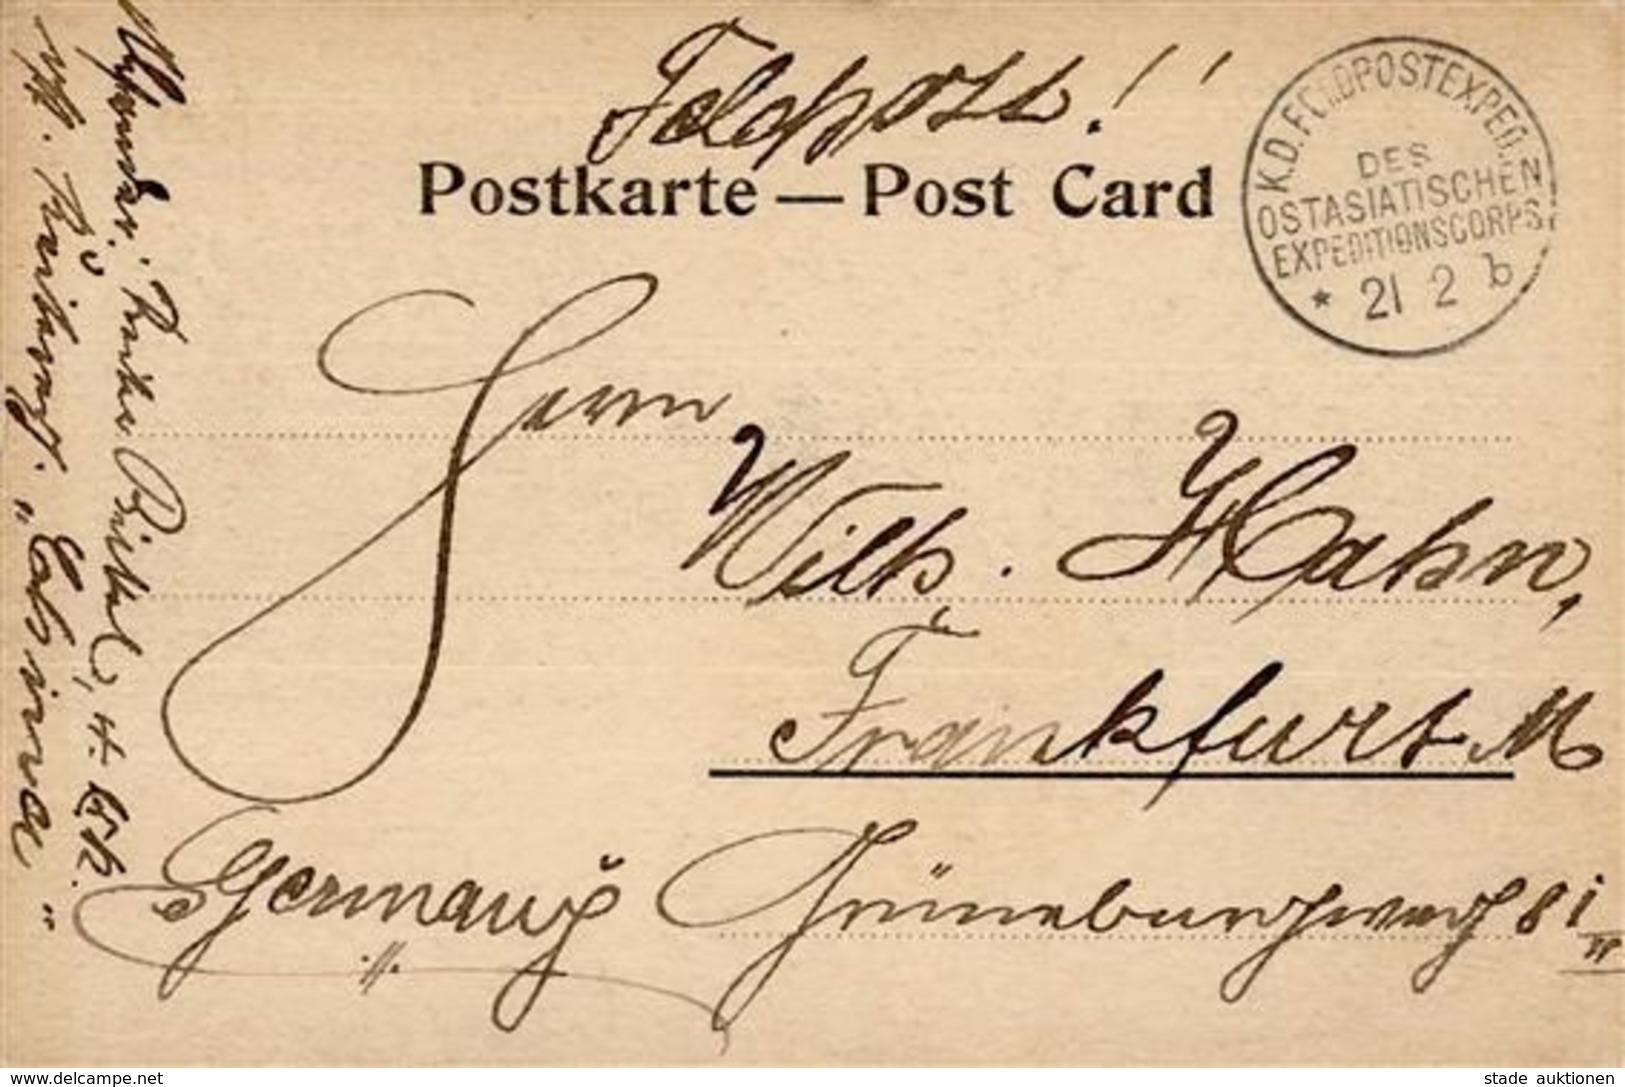 Feldpost!!
Postkarte — Post Card
K.D. FELDPOSTEXPED.
DES
OSTASIATISCHEN
EXPEDITIONSCORPS.
* 21 2 b
Herrn
Wilh. Hahn,
Frankfurt M
Grüneburgweg 81 II
Germany
Absender:
"Etsina"
www.delcampe.net
stade auktionen